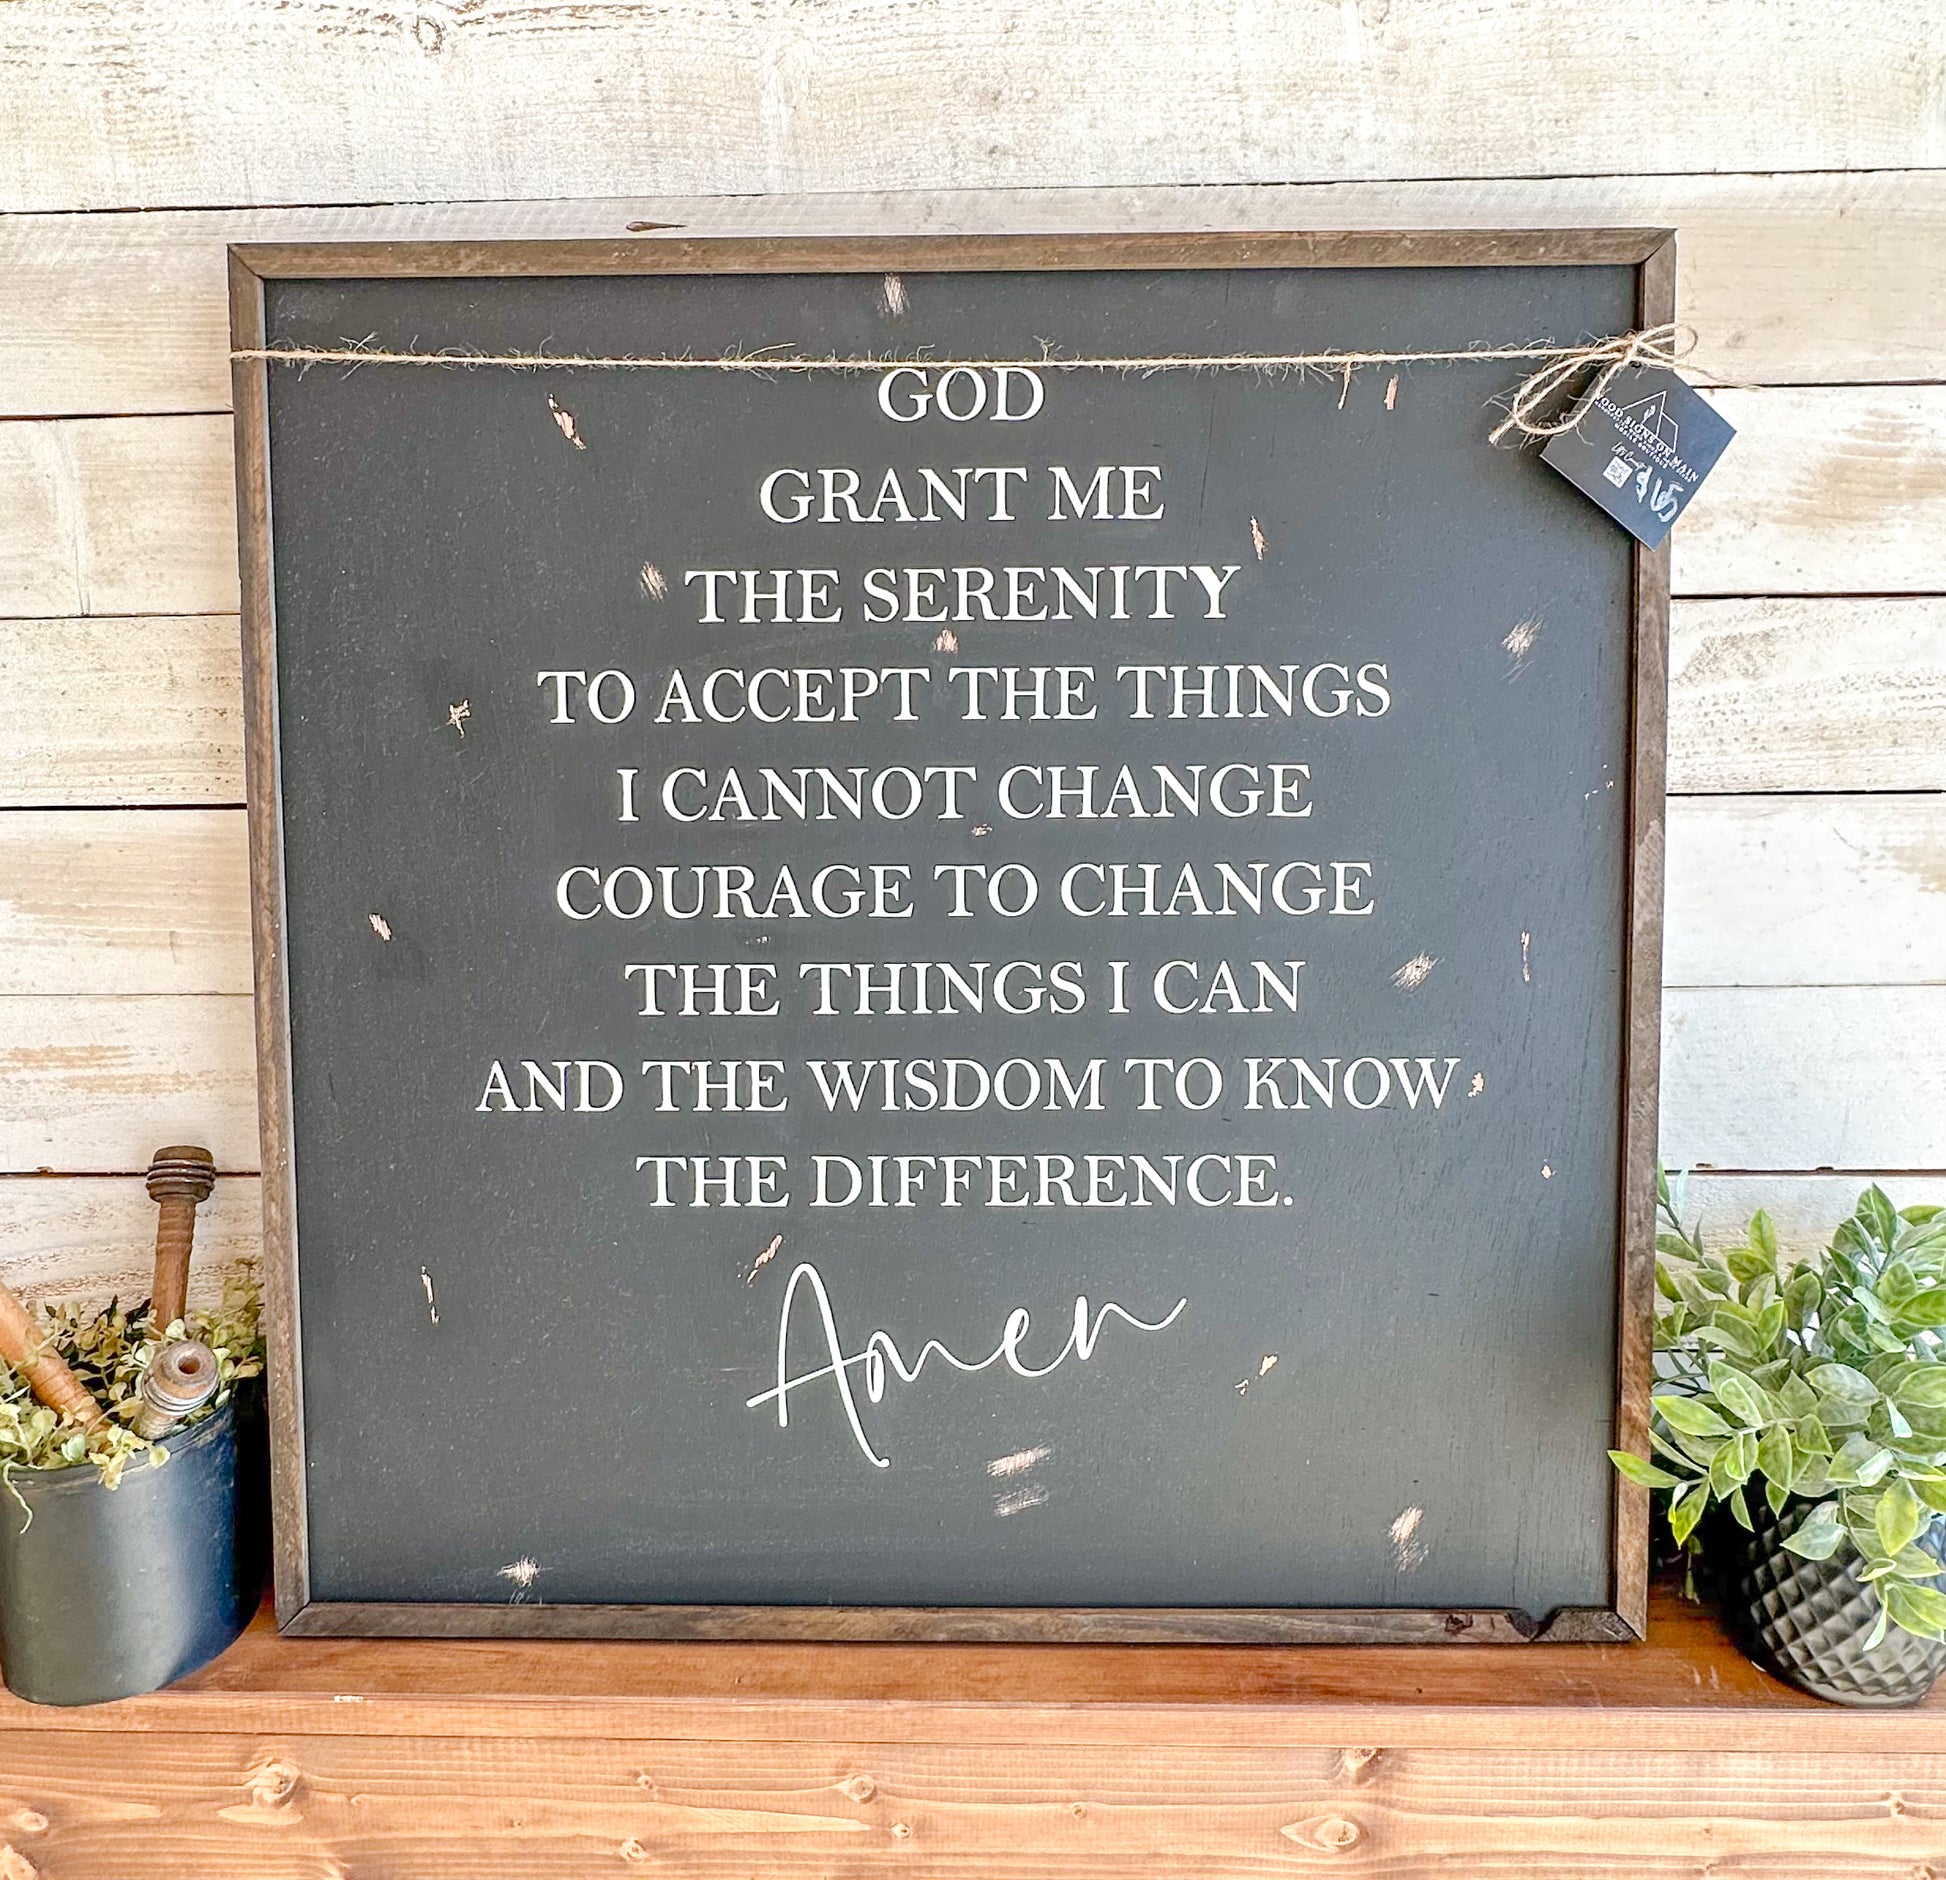 GOD
GRANT ME
THE SERENITY
TO ACCEPT THE THINGS
I CANNOT CHANGE
COURAGE TO CHANGE
THE THINGS I CAN
AND THE WISDOM TO KNOW
THE DIFFERENCE.
Amen
WOOD SIGNS ON MAIN
MOBILE BOUTIQUE
$165